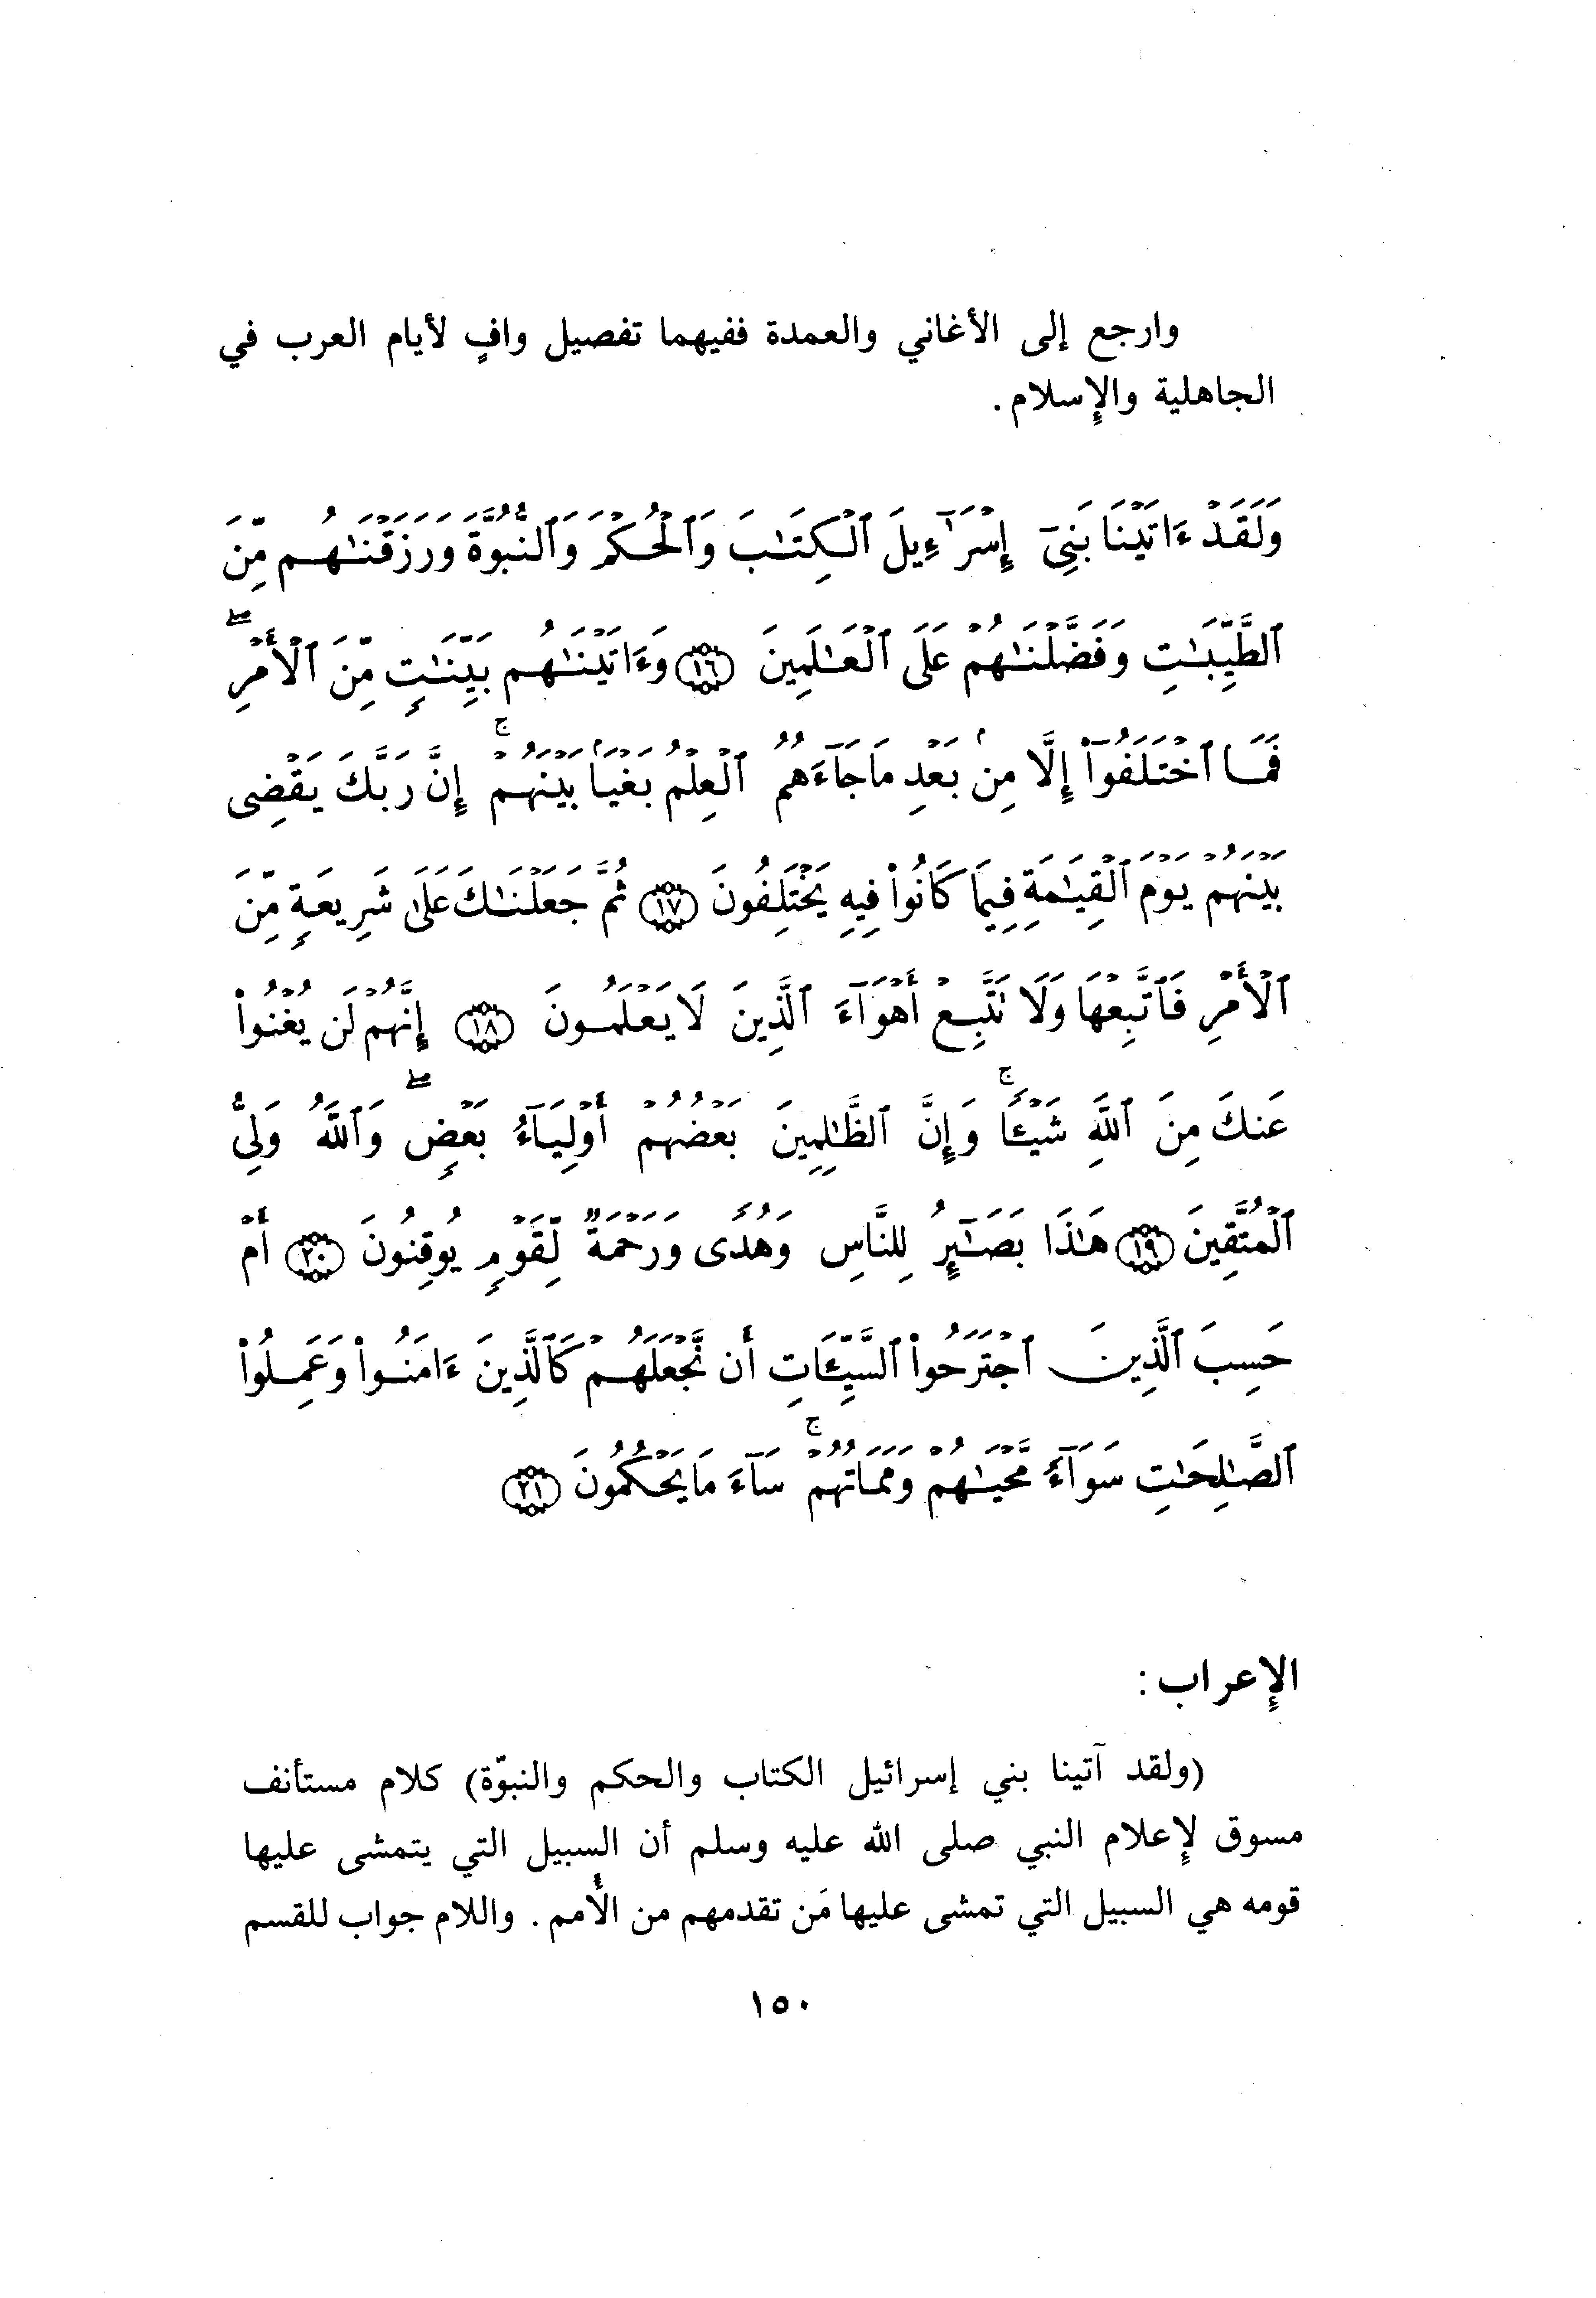 وارجع إلى الأغاني والعمدة ففيهما تفصيل وافٍ لأيام العرب في
الجاهلية والإسلام.
وَلَقَدْ ءَاتَيْنَا بَنِىٓ إِسْرَٰٓءِيلَ ٱلْكِتَٰبَ وَٱلْحُكْمَ وَٱلنُّبُوَّةَ وَرَزَقْنَٰهُم مِّنَ
ٱلطَّيِّبَٰتِ وَفَضَّلْنَٰهُمْ عَلَى ٱلْعَٰلَمِينَ ۝١٦ وَءَاتَيْنَٰهُم بَيِّنَٰتٍ مِّنَ ٱلْأَمْرِ ۖ
فَمَا ٱخْتَلَفُوٓا۟ إِلَّا مِنۢ بَعْدِ مَا جَآءَهُمُ ٱلْعِلْمُ بَغْيًۢا بَيْنَهُمْ ۚ إِنَّ رَبَّكَ يَقْضِى
بَيْنَهُمْ يَوْمَ ٱلْقِيَٰمَةِ فِيمَا كَانُوا۟ فِيهِ يَخْتَلِفُونَ ۝١٧ ثُمَّ جَعَلْنَٰكَ عَلَىٰ شَرِيعَةٍ مِّنَ
ٱلْأَمْرِ فَٱتَّبِعْهَا وَلَا تَتَّبِعْ أَهْوَآءَ ٱلَّذِينَ لَا يَعْلَمُونَ ۝١٨ إِنَّهُمْ لَن يُغْنُوا۟
عَنكَ مِنَ ٱللَّهِ شَيْـًٔا ۚ وَإِنَّ ٱلظَّٰلِمِينَ بَعْضُهُمْ أَوْلِيَآءُ بَعْضٍ ۖ وَٱللَّهُ وَلِىُّ
ٱلْمُتَّقِينَ ۝١٩ هَٰذَا بَصَٰٓئِرُ لِلنَّاسِ وَهُدًى وَرَحْمَةٌ لِّقَوْمٍ يُوقِنُونَ ۝٢٠ أَمْ
حَسِبَ ٱلَّذِينَ ٱجْتَرَحُوا۟ ٱلسَّيِّـَٔاتِ أَن نَّجْعَلَهُمْ كَٱلَّذِينَ ءَامَنُوا۟ وَعَمِلُوا۟
ٱلصَّٰلِحَٰتِ سَوَآءً مَّحْيَٰهُمْ وَمَمَاتُهُمْ ۚ سَآءَ مَا يَحْكُمُونَ ۝٢١
الإعراب :
(ولقد آتينا بني إسرائيل الكتاب والحكم والنبوّة) كلام مستأنف
مسوق لإعلام النبي صلى الله عليه وسلم أن السبيل التي يتمشى عليها
قومه هي السبيل التي تمشى عليها مَن تقدمهم من الأُمم . واللام جواب للقسم
١٥٠